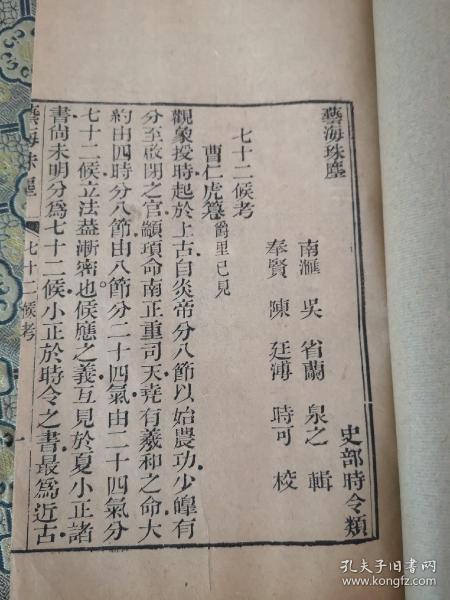 藝海珠塵
史部時令類
南滙 吳省蘭 泉之 輯
奉賢 陳廷溥 時可 校
七十二候考
曹仁虎篹 爵里已見
觀象授時起於上古自炎帝分八節以始農功少皥有
分至啟閉之官顓頊命南正重司天堯有羲和之命大
約由四時分八節由八節分二十四氣由二十四氣分
七十二候立法葢漸密也候應之義互見於夏小正諸
書尚未明分爲七十二候小正於時令之書最爲近古
藝海珠塵
七十二候考
一
孔夫子旧书网
www.kongfz.com